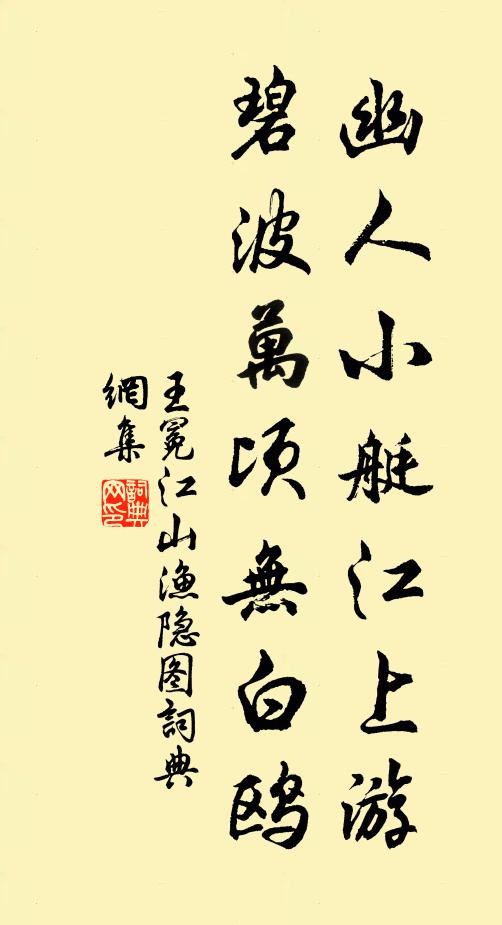 幽人小艇江上游
碧波萬頃無白鷗
王冕江山漁隐图詞典
網集
詞典
网印